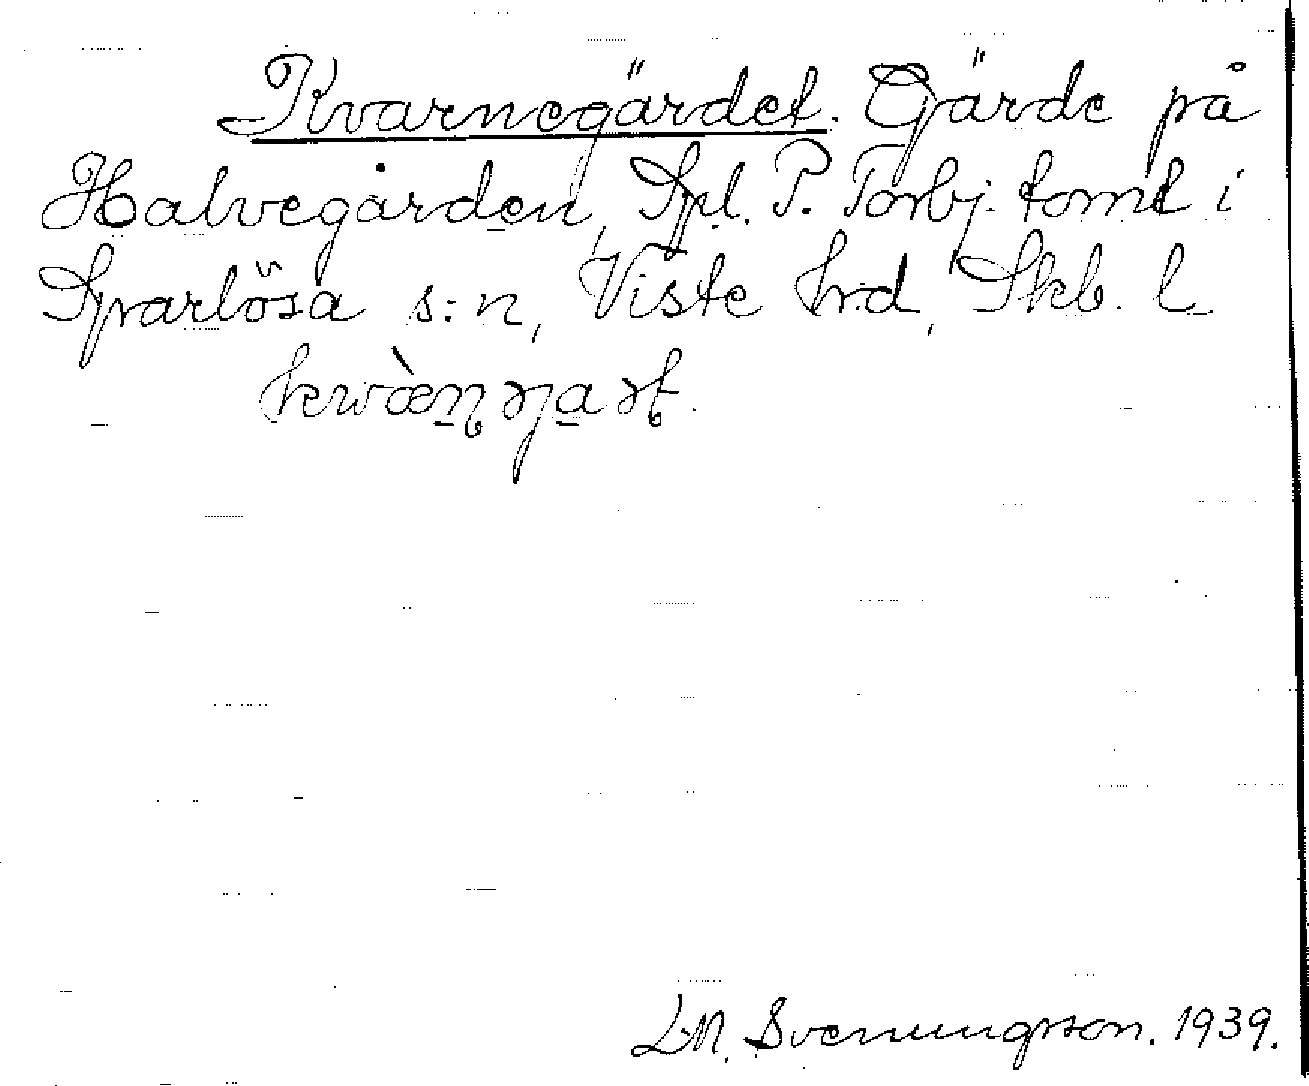 Kvarnegärdet. Gärde på
Halvegården, Spl. P. Torbj. tomt i
Sparlösa s:n, Viste hrd, Skb. l.
L.M. Svenungsson. 1939.